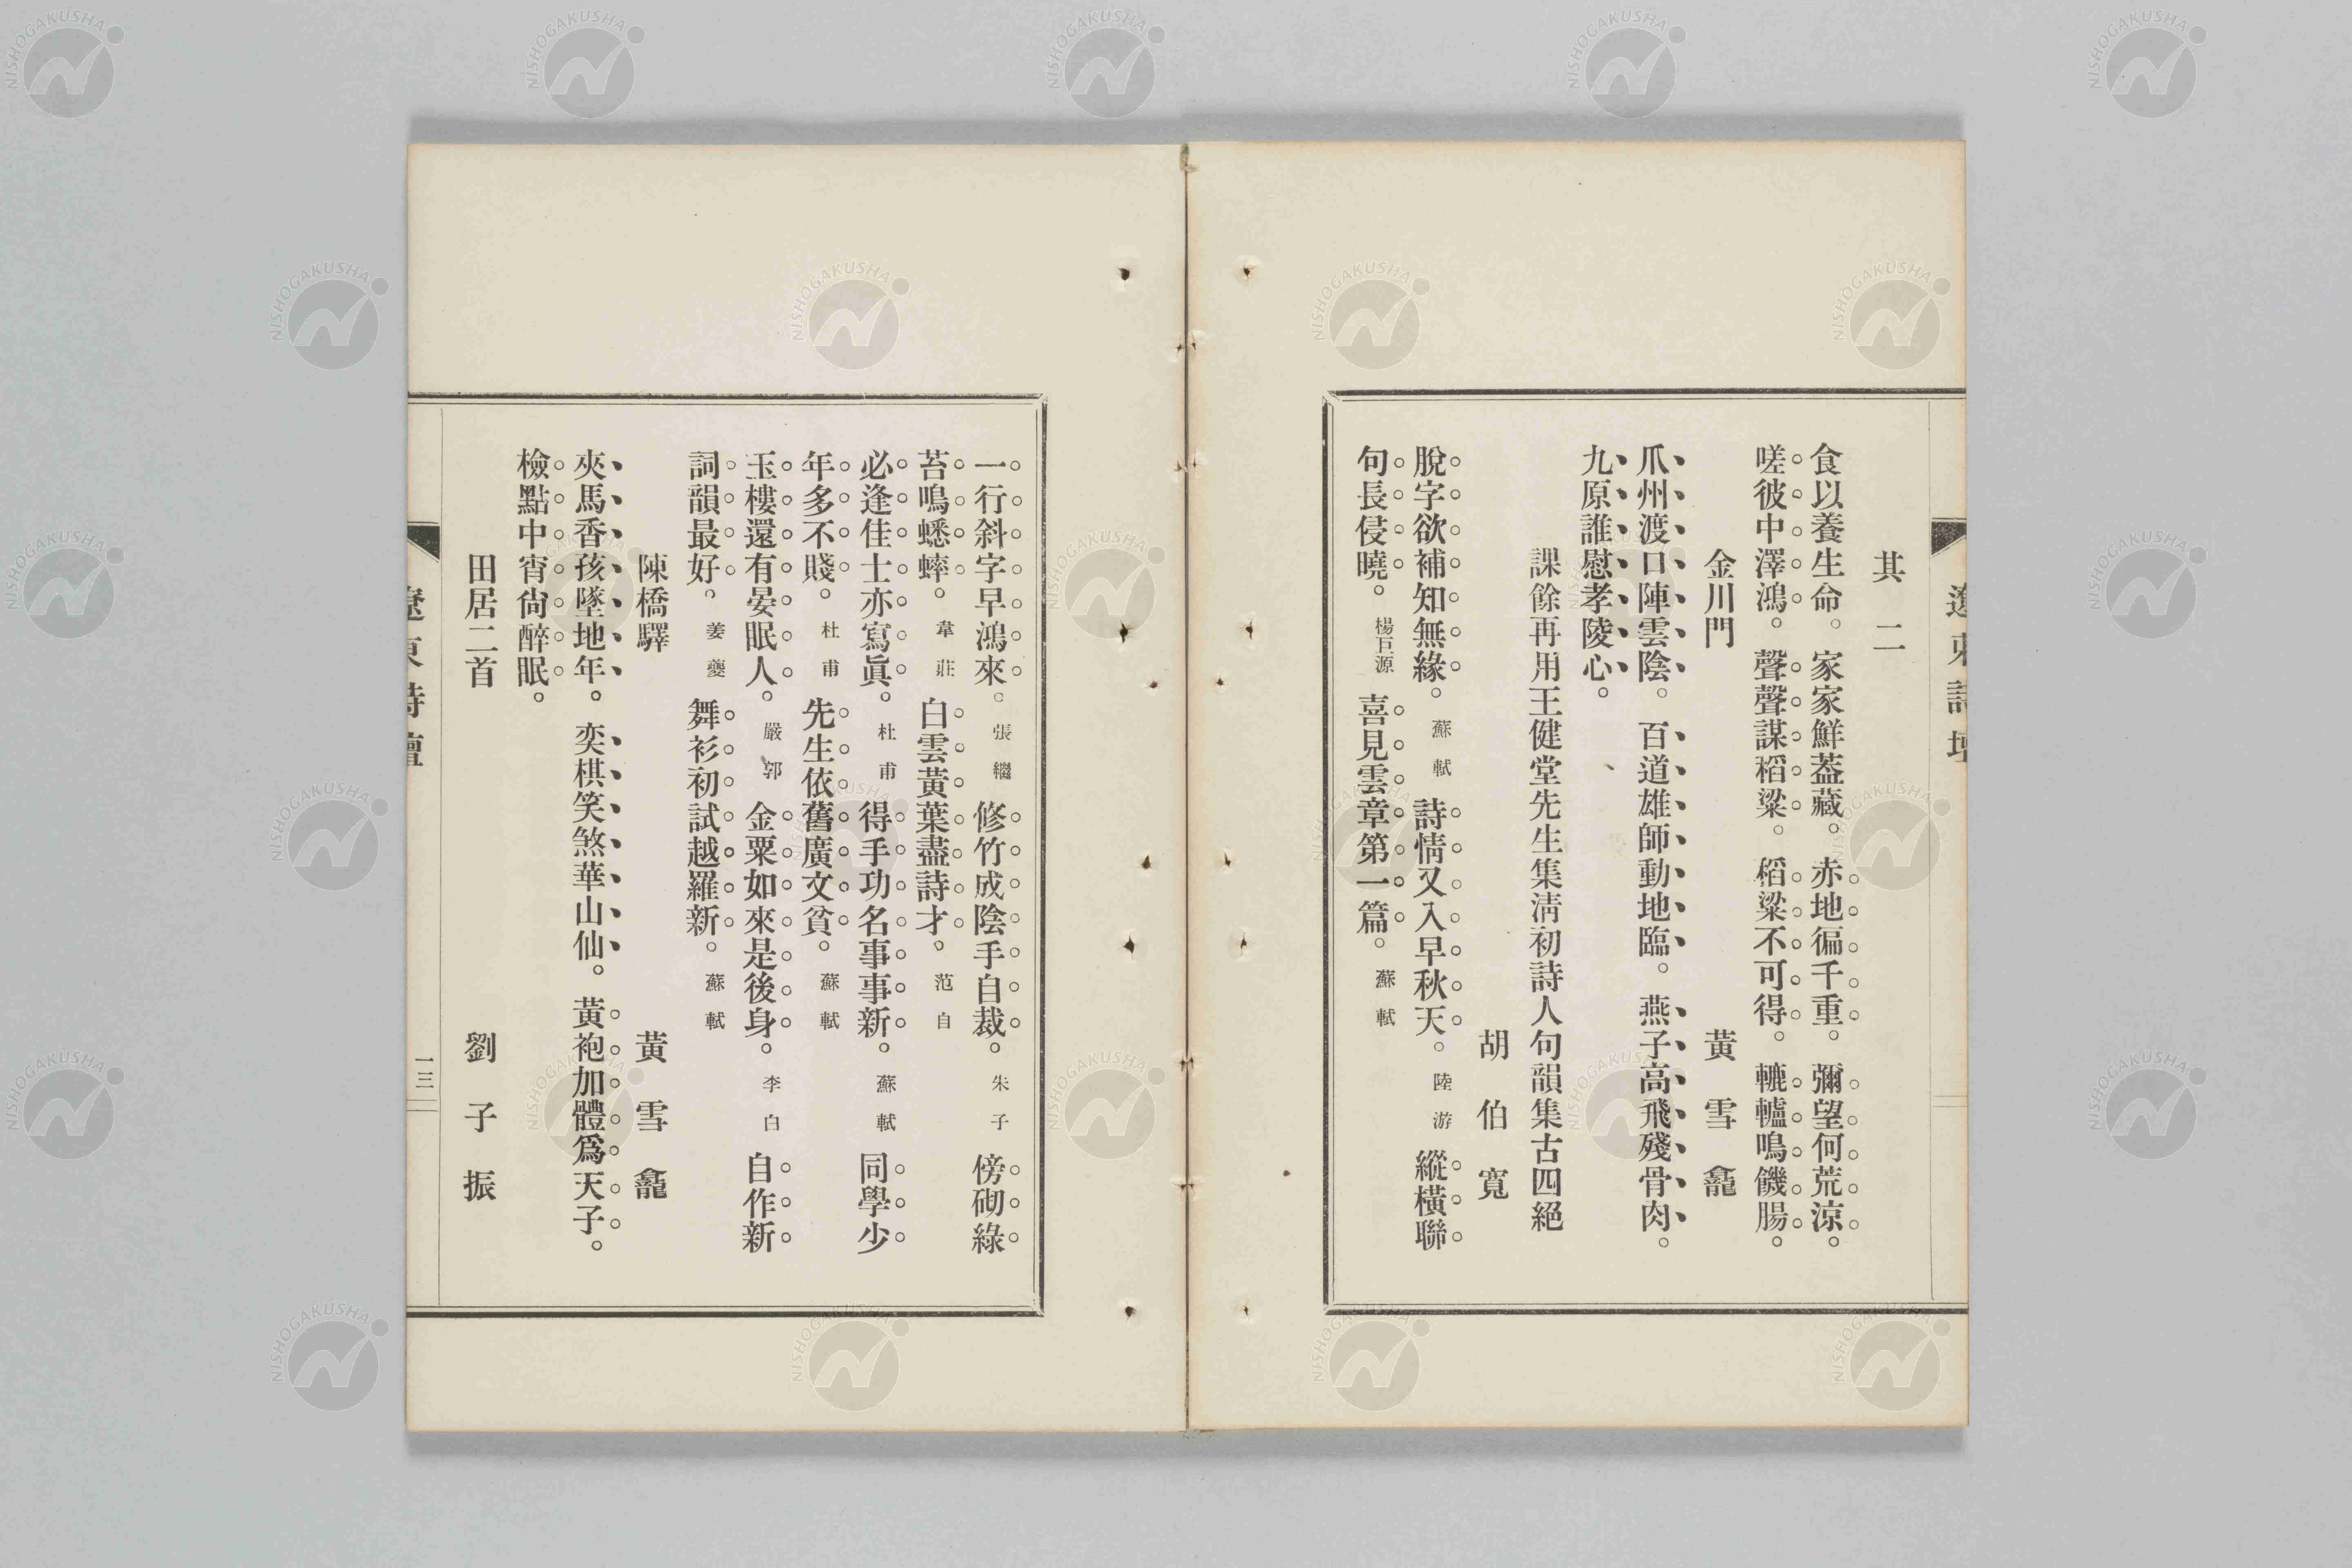 遼東詩壇
其二
食以養生命。家家鮮蓋藏。赤地徧千重。彌望何荒涼。
嗟彼中澤鴻。聲聲謀稻粱。稻粱不可得。轆轤鳴饑腸。
金川門 黃雪龕
爪州渡口陣雲陰。百道雄師動地臨。燕子高飛殘骨肉。
九原誰慰孝陵心。
課餘再用王健堂先生集淸初詩人句韻集古四絕
胡伯寬
脫字欲補知無緣。蘇軾 詩情又入早秋天。陸游 縱橫聯
句長侵曉。楊巨源 喜見雲章第一篇。蘇軾
一行斜字早鴻來。張繼 修竹成陰手自裁。朱子 傍砌綠
苔鳴蟋蟀。韋莊 白雲黃葉盡詩才。范自
必逢佳士亦寫眞。杜甫 得手功名事事新。蘇軾 同學少
年多不賤。杜甫 先生依舊廣文貧。蘇軾
玉樓還有晏眠人。嚴郭 金粟如來是後身。李白 自作新
詞韻最好。姜夔 舞衫初試越羅新。蘇軾
陳橋驛 黃雪龕
夾馬香孩墜地年。奕棋笑煞華山仙。黃袍加體爲天子。
檢點中宵尙醉眠。
田居二首 劉子振
遼東詩壇
一三
NISHOGAKUSHA